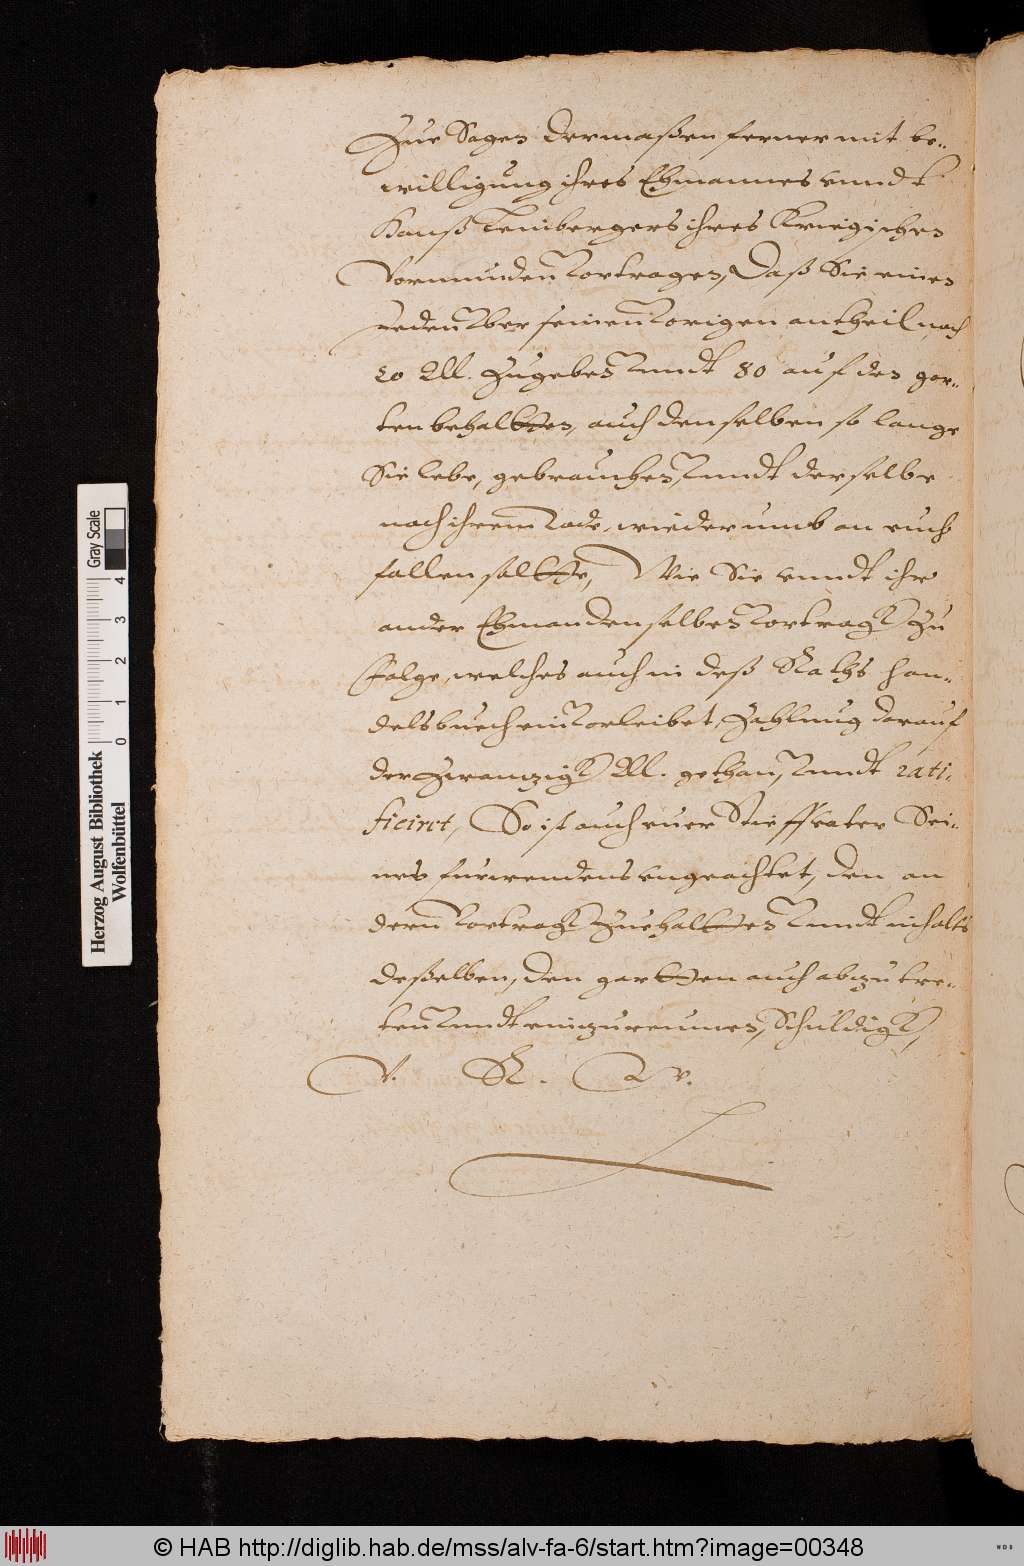 Zue Sagen dermaßen ferner mit be-
willigung ihres Ehmannes vnndt
Hanß Leinbergers ihres Kriegischen
Vormunden vortragen, Daß Sie einen
Jeden vber seinen vorigen antheil noch
20 fl. Zugeben vnndt 80 auf den gar-
ten behaltten, auch denselben so lange
Sie lebe, gebrauchen, vnndt derselbe
nach ihrem Tode, wiederumb an euch
fallen soltte, Wie Sie vnndt ihr
ander Ehman denselben vortragk Zu
Folge, welches auch in deß Raths han-
delsbuech ein vorleibet, Zahlung darauf
der Zwanzigk fl. gethan, vnndt rati-
ficiret, So ist auch euer Stieffvater Sei-
nes furwendens vngeachtet, den an
dern vortragk Zuehaltten vnndt inhalts
deßelben, den gartten auch abzutre-
ten vnndt einzureumen, Schuldigk,
V. R. W.
Herzog August Bibliothek
Wolfenbüttel
Gray Scale
0 1 2 3 4
© HAB http://diglib.hab.de/mss/alv-fa-6/start.htm?image=00348